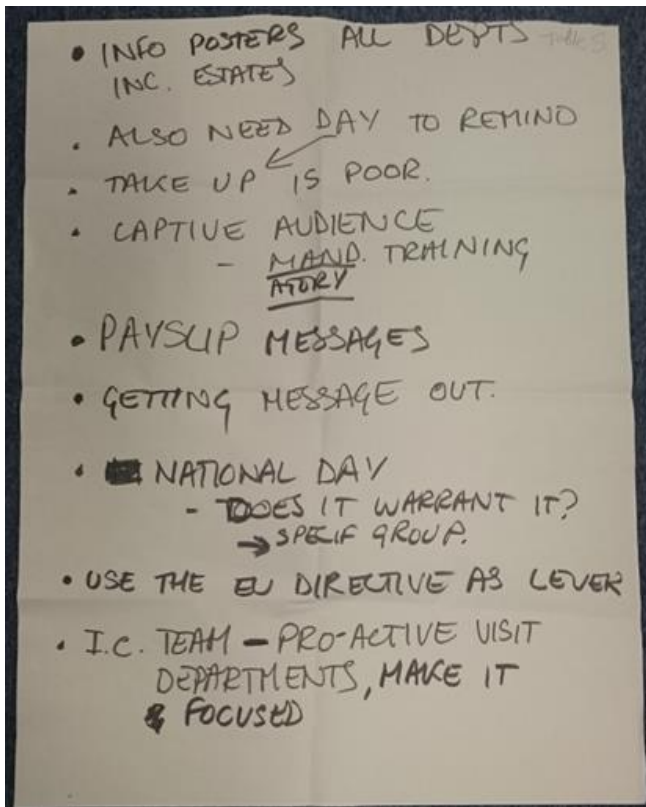 • INFO POSTERS ALL DEPTS
INC. ESTATES
• ALSO NEED DAY TO REMIND
• TAKE UP IS POOR.
• CAPTIVE AUDIENCE
- MAND. TRAINING
ATORY
• PAYSLIP MESSAGES
• GETTING MESSAGE OUT.
• NATIONAL DAY
- DOES IT WARRANT IT?
→ SPECIF GROUP.
• USE THE EU DIRECTIVE AS LEVER
• I.C. TEAM – PRO-ACTIVE VISIT
DEPARTMENTS, MAKE IT
FOCUSED